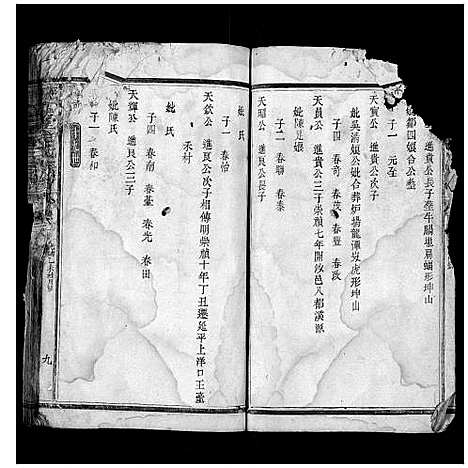 進貴公長子葬牛腸墘肩蝠形坤山
都四娘合公塟
子一 元至
天寶公 進貴公次子
妣吳滿娘公妣合葬炉塲龍潭岌虎形坤山
子四 春奇 春茂 春豊 春政
天員公 進貴公三子崇禎七年開汝邑八都溪源
妣陳見娘
子二 春聯 春泰
天昭公 進良公長子
妣氏
子一 春怡
天欽公 進良公次子相傳明崇禎十年丁丑遷延平上洋口王臺
禾村
妣氏
子四 春劑 春臺 春光 春田
天輝公 進良公三子
妣陳氏
子一 春和
九